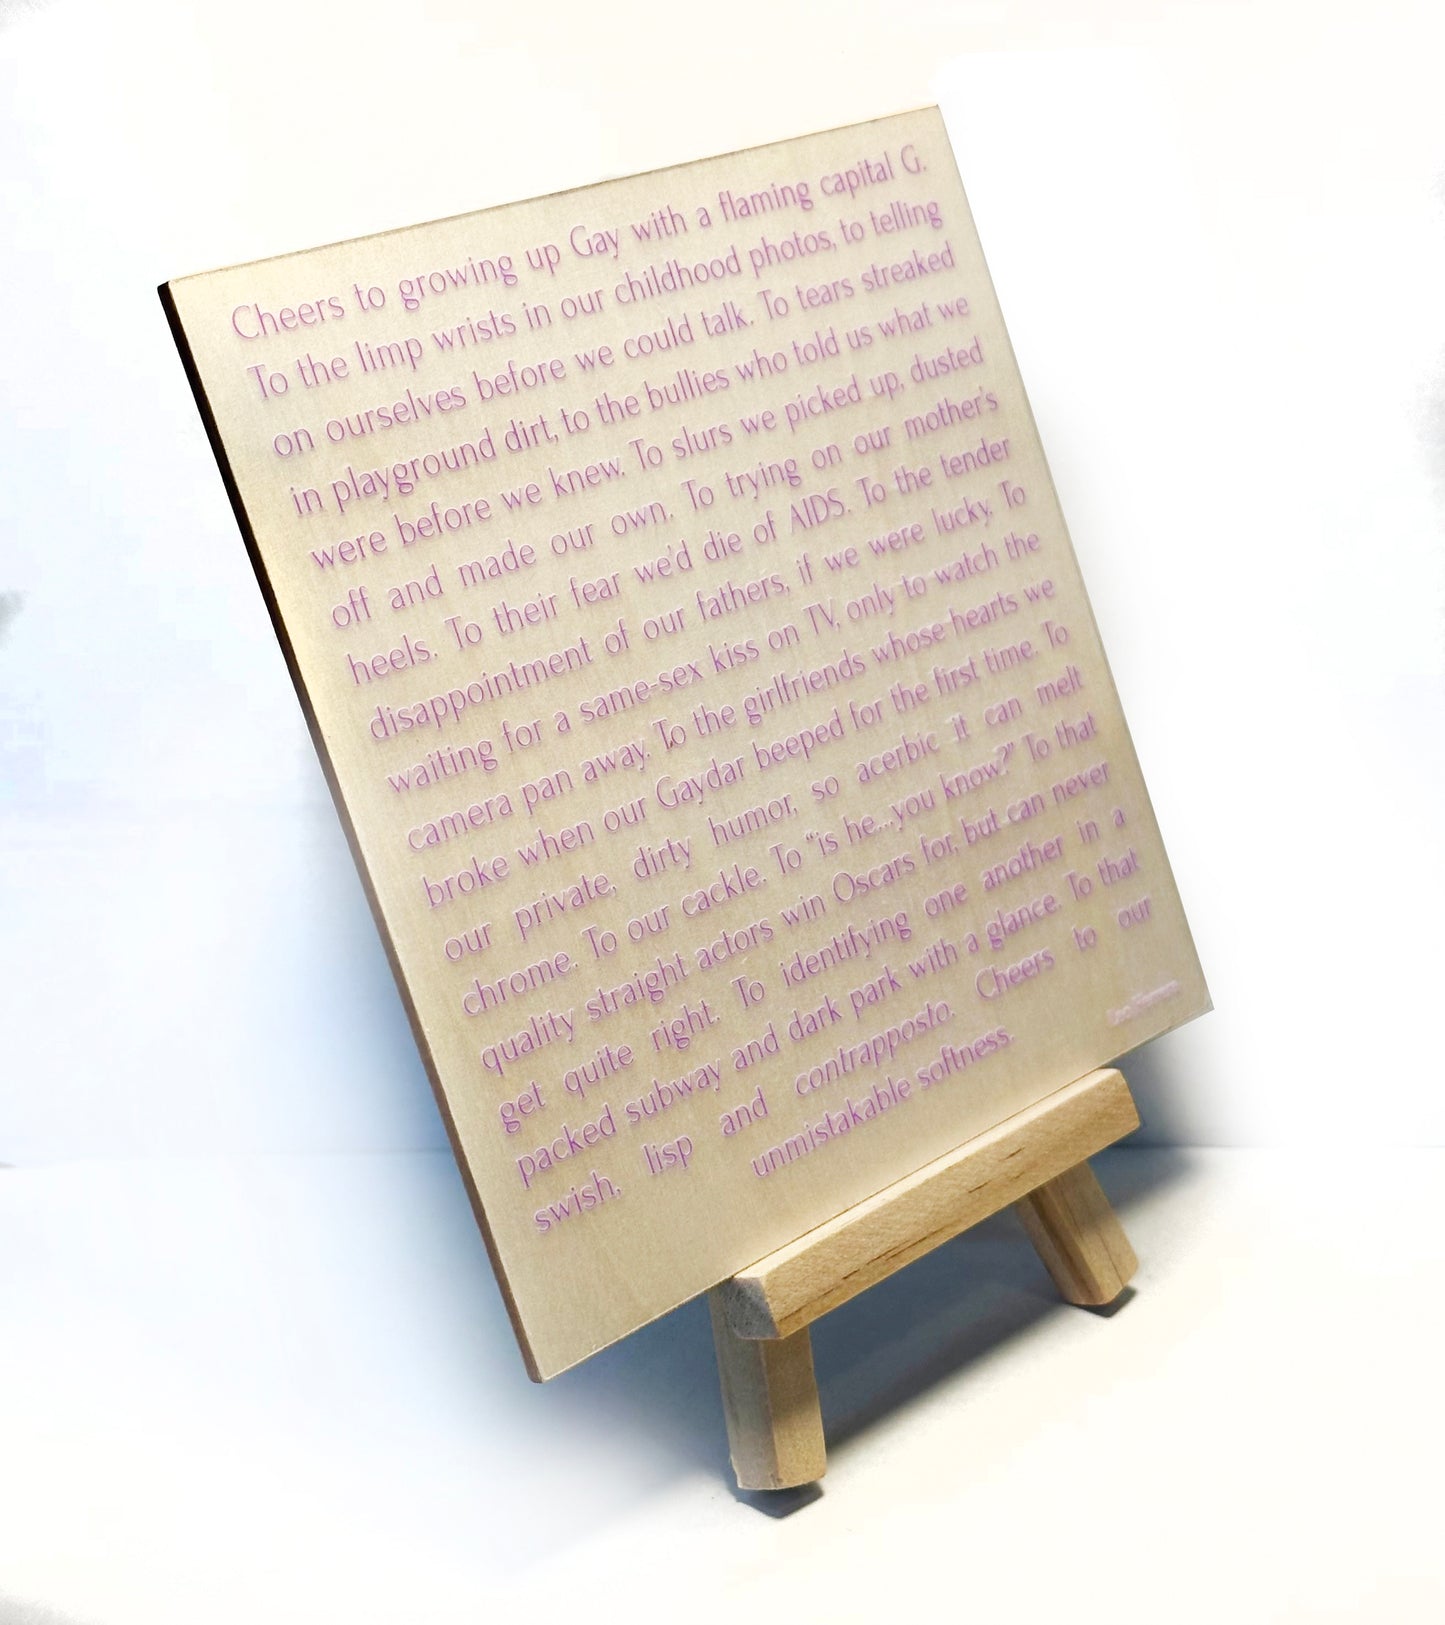 Cheers to growing up Gay with a flaming capital G.
To the limp wrists in our childhood photos, to telling
on ourselves before we could talk. To tears streaked
in playground dirt, to the bullies who told us what we
were before we knew. To slurs we picked up, dusted
off and made our own. To trying on our mother's
heels. To their fear we'd die of AIDS. To the tender
disappointment of our fathers, if we were lucky. To
waiting for a same-sex kiss on TV, only to watch the
camera pan away. To the girlfriends whose hearts we
broke when our Gaydar beeped for the first time. To
our private, dirty humor, so acerbic it can melt
chrome. To our cackle. To "is he...you know?" To that
quality straight actors win Oscars for, but can never
get quite right. To identifying one another in a
packed subway and dark park with a glance. To that
swish, lisp and contrapposto. Cheers to our
unmistakable softness.